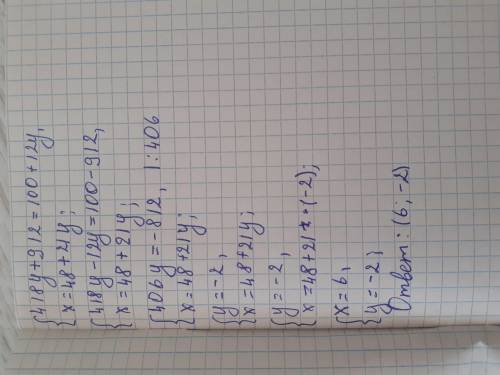 {418y+912=100+12y,
x=48+21y;
{418y-12y=100-912,
x=48+21y;
{406y=-812, |:406
x=48+21y;
{y=-2,
x=48+21y;
{y=-2,
x=48+21*(-2);
{x=6,
y=-2;
Ответ: (6; -2)